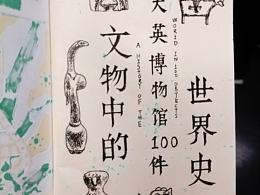 大英博物馆100件
文物中的
世界史
A HISTORY OF THE
WORLD IN 100 OBJECTS